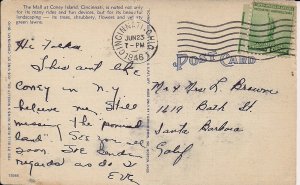 The Mall at Coney Island, Cincinnati, is noted not only
for its many rides and fun devices, but for its beautiful
landscaping — its trees, shrubbery, flowers and velvety
green lawns.
CINCINNATI, OHIO
JUN 25
7-PM
1946
POST CARD
Hi Folks
This aint the
Coney in N.Y.
believe me. Still
missing the "
land". See you all
soon. Joe sends
regards as do I
Ev
Mr & Mrs L. Browne
1619 Bath St
Santa Barbara
Calif